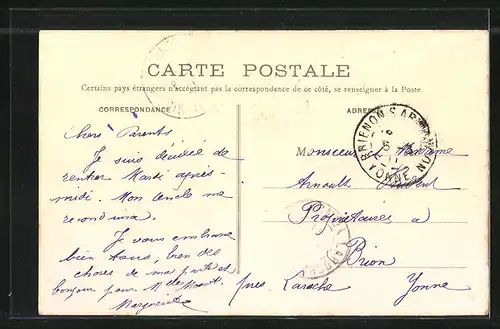 CARTE POSTALE
Certains pays étrangers n'acceptent pas la correspondance de ce côté, se renseigner à la Poste
CORRESPONDANCE
Chers Parents
Je suis décidée de
rentrer Mardi après-
midi. Mon oncle me
reconduira.
Je vous embrasse
bien tous, bien des
choses de ma part et
bonjour pour M
Marguerite
ADRESSE
Monsieur Madame
Arnoult
Propriétaires à
Brion
près Laroche Yonne
BRIENON S ARMANÇON
YONNE